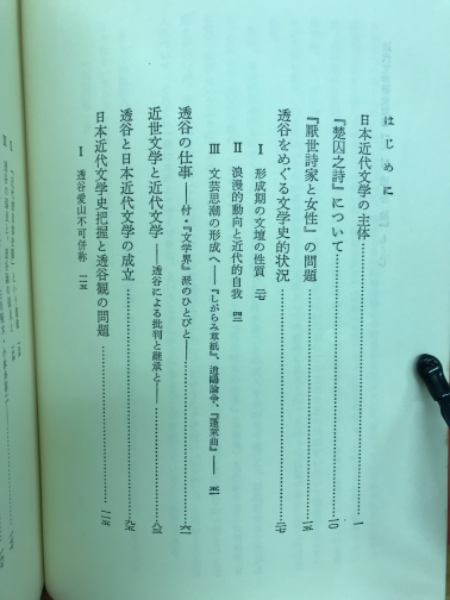 はじめに
日本近代文学の主体……………一
『楚囚之詩』について……………一〇
『厭世詩家と女性』の問題……………一五
透谷をめぐる文学史的状況……………二七
Ⅰ 形成期の文壇の性質 二七
Ⅱ 浪漫的動向と近代的自我 四三
Ⅲ 文芸思潮の形成へ——『しがらみ草紙』、逍鷗論争、『蓬萊曲』—— 五一
透谷の仕事——付・『文学界』派のひとびと——……………六一
近世文学と近代文学——透谷による批判と継承と——……………八三
透谷と日本近代文学の成立……………九五
日本近代文学史把握と透谷観の問題……………一一五
Ⅰ 透谷愛山不可併称 一一五